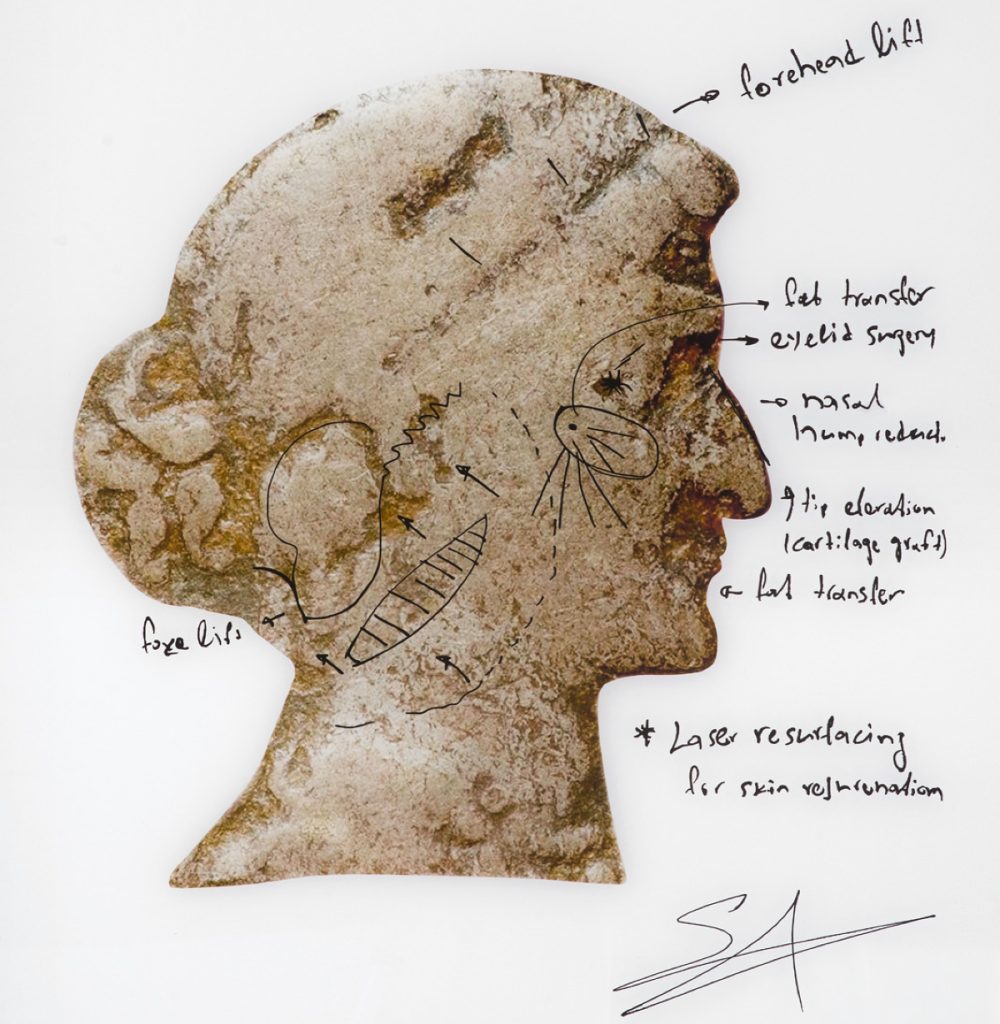 forehead lift
fat transfer
eyelid surgery
nasal
hump reduct.
tip elevation
(cartilage graft)
fat transfer
face lift
* Laser resurfacing
for skin rejuvenation
SA